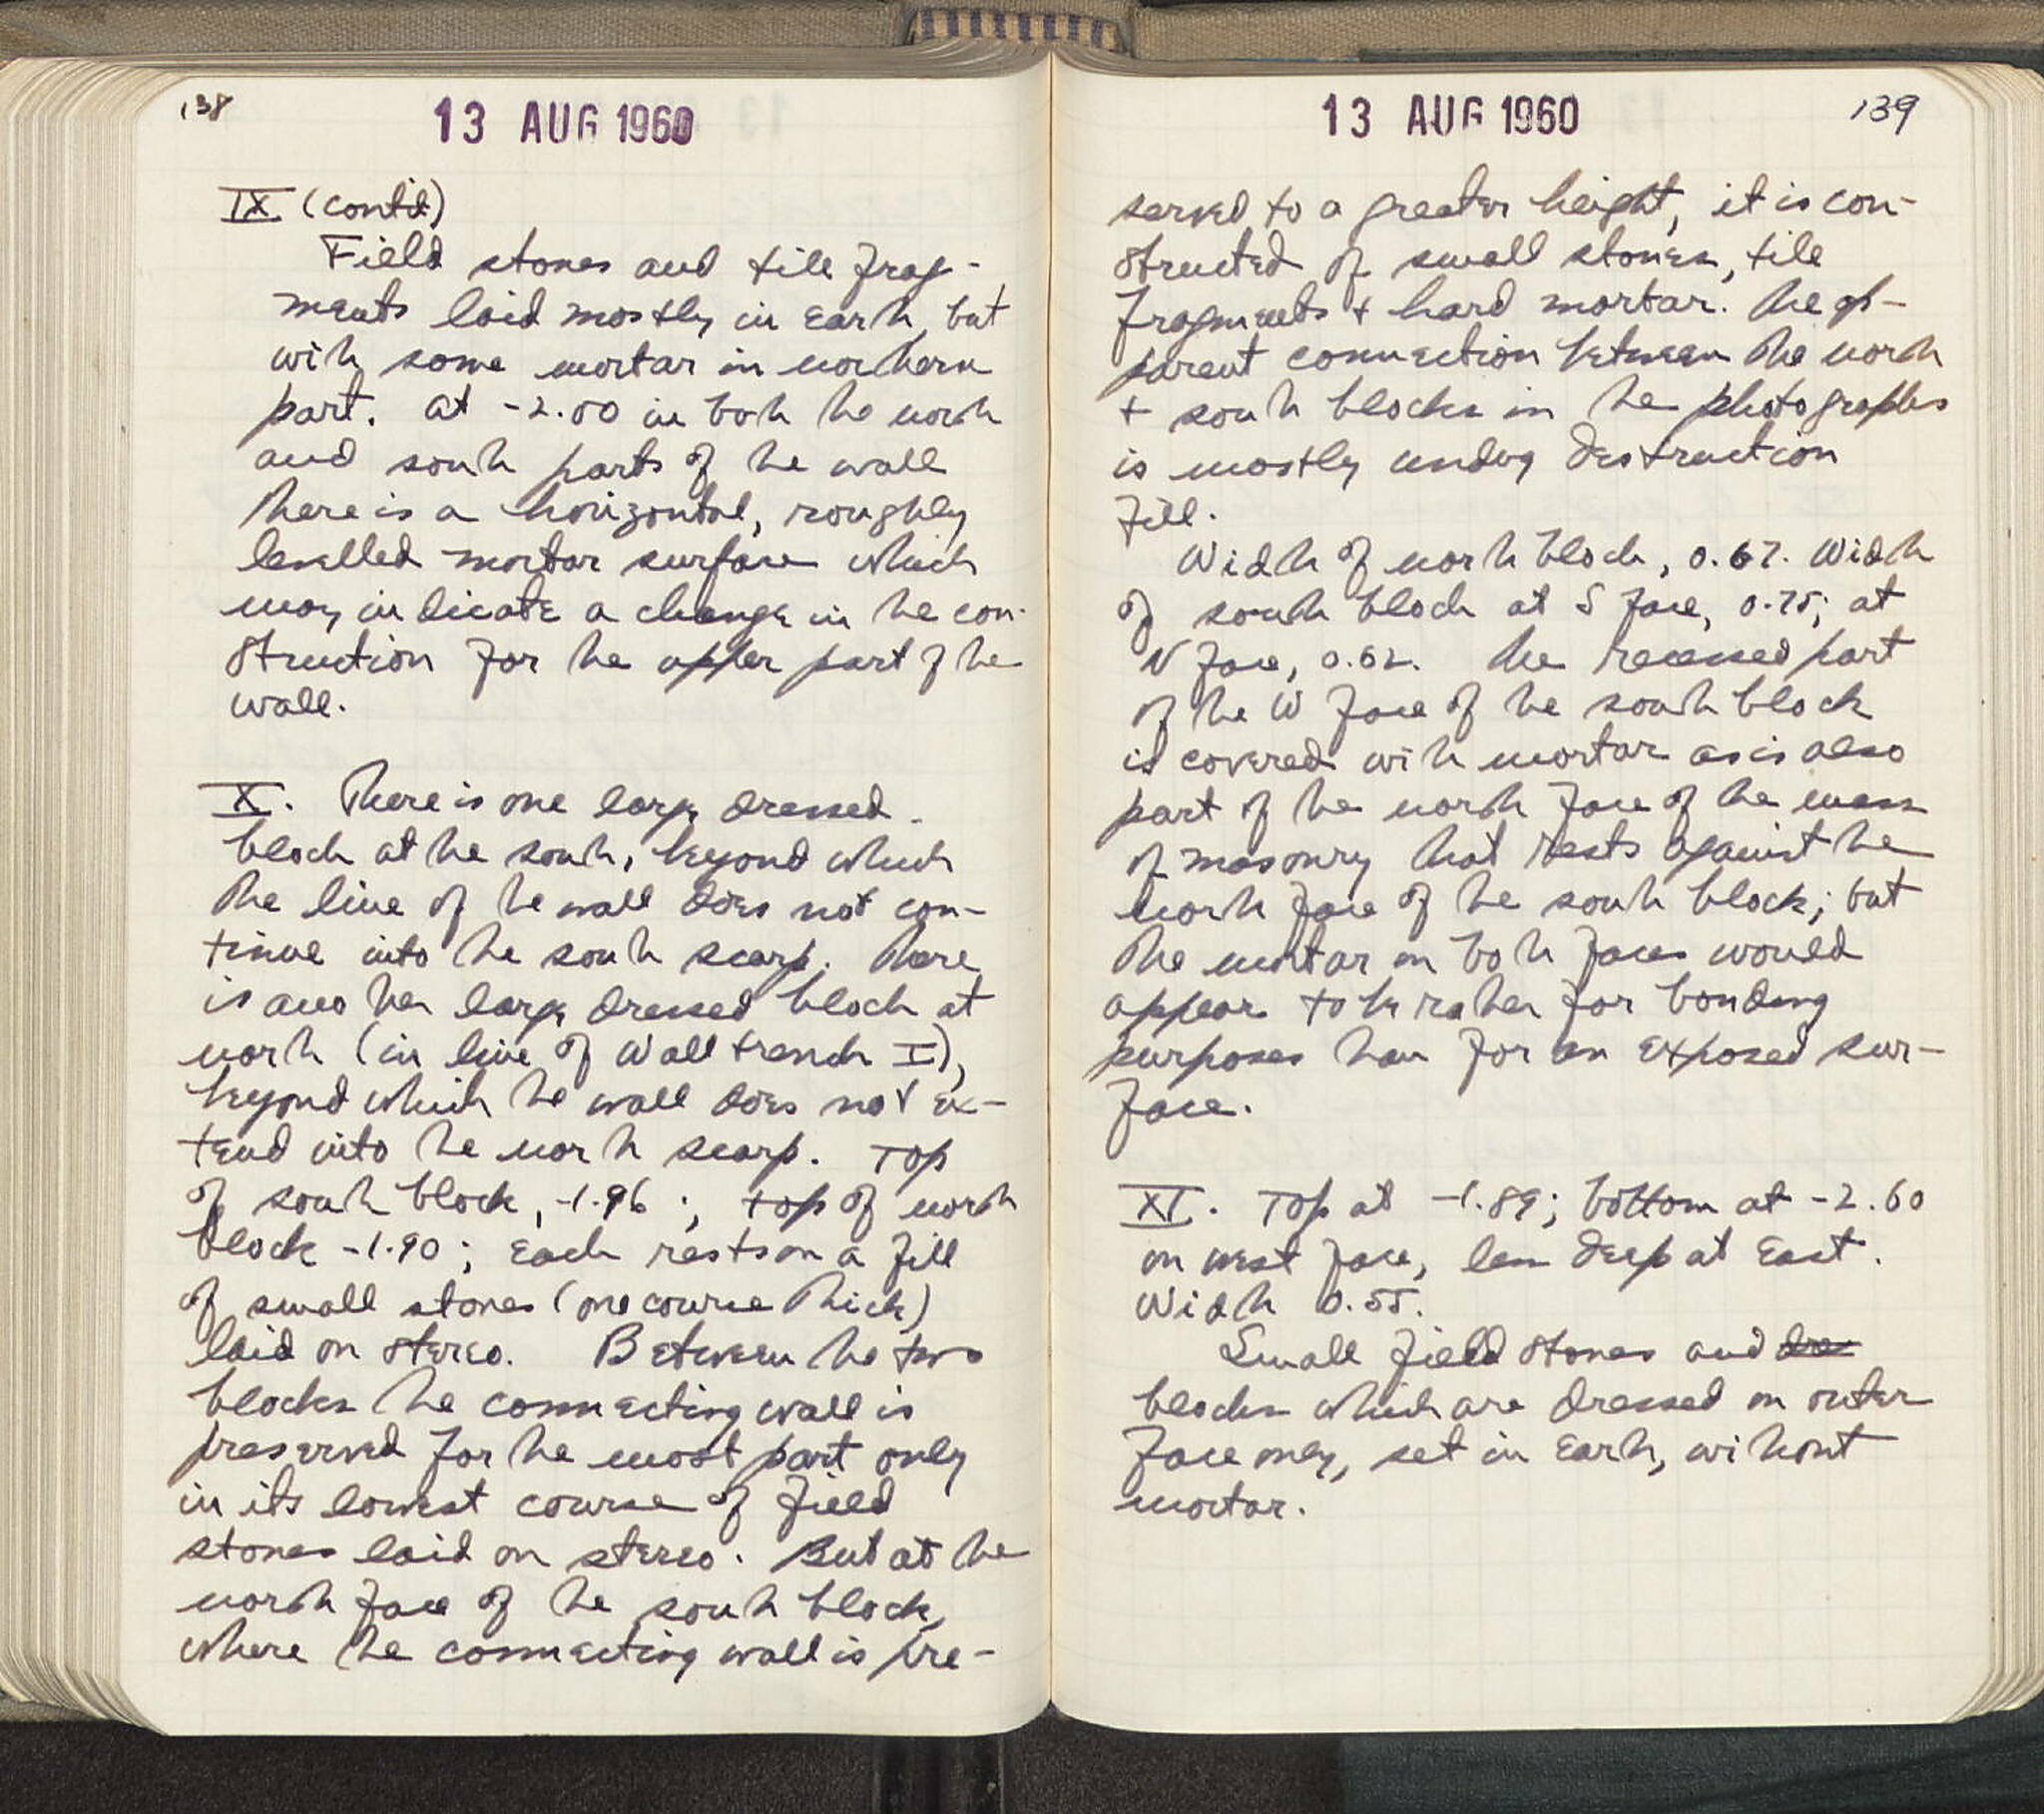 138
13 AUG 1960
IX (cont'd)
Field stones and tile frag-
ments laid mostly in earth, but
with some mortar in northern
part. At -2.00 in both the north
and south parts of the wall
there is a horizontal, roughly
levelled mortar surface which
may indicate a change in the con-
struction for the upper part of the
wall.
X. There is one large dressed
block at the south, beyond which
the line of the wall does not con-
tinue into the south scarp. There
is another large dressed block at
north (in line of Wall trench I),
beyond which the wall does not ex-
tend into the north scarp. Top
of south block, -1.96; top of north
block -1.90; each rests on a fill
of small stones (one course thick)
laid on stereo. Between the two
blocks the connecting wall is
preserved for the most part only
in its lowest course of field
stones laid on stereo. But at the
north face of the south block,
where the connecting wall is pre-
13 AUG 1960
139
served to a greater height, it is con-
structed of small stones, tile
fragments + hard mortar. The ap-
parent connection between the north
+ south blocks in the photographs
is mostly undug destruction
fill.
Width of north block, 0.67. Width
of south block at S face, 0.75; at
N face, 0.62. The recessed part
of the W face of the south block
is covered with mortar as is also
part of the north face of the mass
of masonry that rests against the
north face of the south block; but
the mortar on both faces would
appear to be rather for bonding
purposes than for an exposed sur-
face.
XI. Top at -1.89; bottom at -2.60
on west face, less deep at East.
Width 0.55.
Small field stones and dre
blocks which are dressed on outer
face only, set in earth, without
mortar.